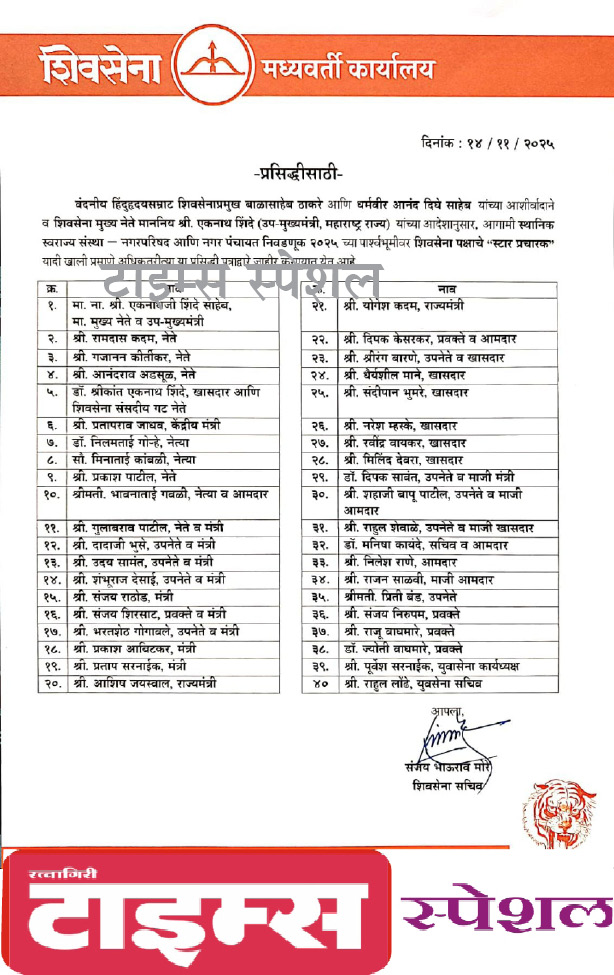 शिवसेना
मध्यवर्ती कार्यालय
दिनांक : १४ / ११ / २०२५
-प्रसिद्धीसाठी-
वंदनीय हिंदुहृदयसम्राट शिवसेनाप्रमुख बाळासाहेब ठाकरे आणि धर्मवीर आनंद दिघे साहेब यांच्या आशीर्वादाने
व शिवसेना मुख्य नेते माननिय श्री. एकनाथ शिंदे (उप-मुख्यमंत्री, महाराष्ट्र राज्य) यांच्या आदेशानुसार, आगामी स्थानिक
स्वराज्य संस्था – नगरपरिषद आणि नगर पंचायत निवडणूक २०२५ च्या पार्श्वभूमीवर शिवसेना पक्षाचे "स्टार प्रचारक"
यादी खाली प्रमाणे अधिकृतरीत्या या प्रसिद्धी पत्राद्वारे जाहीर करण्यात येत आहे.
टाइम्स स्पेशल
क्र. नाव
१. मा. ना. श्री. एकनाथजी शिंदे साहेब,
मा. मुख्य नेते व उप-मुख्यमंत्री
२. श्री. रामदास कदम, नेते
३. श्री. गजानन कीर्तीकर, नेते
४. श्री. आनंदराव अडसूळ, नेते
५. डॉ. श्रीकांत एकनाथ शिंदे, खासदार आणि
शिवसेना संसदीय गट नेते
६. श्री. प्रतापराव जाधव, केंद्रीय मंत्री
७. डॉ. निलमताई गोऱ्हे, नेत्या
८. सौ. मिनाताई कांबळी, नेत्या
९. श्री. प्रकाश पाटील, नेते
१०. श्रीमती. भावनाताई गवळी, नेत्या व आमदार
११. श्री. गुलाबराव पाटील, नेते व मंत्री
१२. श्री. दादाजी भुसे, उपनेते व मंत्री
१३. श्री. उदय सामंत, उपनेते व मंत्री
१४. श्री. शंभूराज देसाई, उपनेते व मंत्री
१५. श्री. संजय राठोड, मंत्री
१६. श्री. संजय शिरसाट, प्रवक्ते व मंत्री
१७. श्री. भरतशेठ गोगावले, उपनेते व मंत्री
१८. श्री. प्रकाश आबिटकर, मंत्री
१९. श्री. प्रताप सरनाईक, मंत्री
२०. श्री. आशिष जयस्वाल, राज्यमंत्री
क्र. नाव
२१. श्री. योगेश कदम, राज्यमंत्री
२२. श्री. दिपक केसरकर, प्रवक्ते व आमदार
२३. श्री. श्रीरंग बारणे, उपनेते व खासदार
२४. श्री. धैर्यशील माने, खासदार
२५. श्री. संदीपान भुमरे, खासदार
२६. श्री. नरेश म्हस्के, खासदार
२७. श्री. रवींद्र वायकर, खासदार
२८. श्री. मिलिंद देवरा, खासदार
२९. डॉ. दिपक सावंत, उपनेते व माजी मंत्री
३०. श्री. शहाजी बापू पाटील, उपनेते व माजी
आमदार
३१. श्री. राहुल शेवाळे, उपनेते व माजी खासदार
३२. डॉ. मनिषा कायंदे, सचिव व आमदार
३३. श्री. निलेश राणे, आमदार
३४. श्री. राजन साळवी, माजी आमदार
३५. श्रीमती. प्रिती बंड, उपनेते
३६. श्री. संजय निरुपम, प्रवक्ते
३७. श्री. राजू वाघमारे, प्रवक्ते
३८. डॉ. ज्योती वाघमारे, प्रवक्ते
३९. श्री. पूर्वेश सरनाईक, युवासेना कार्यध्यक्ष
४० श्री. राहुल लोंढे, युवसेना सचिव
आपला,
संजय भाऊराव मोरे
शिवसेना सचिव
रत्नागिरी
टाइम्स स्पेशल